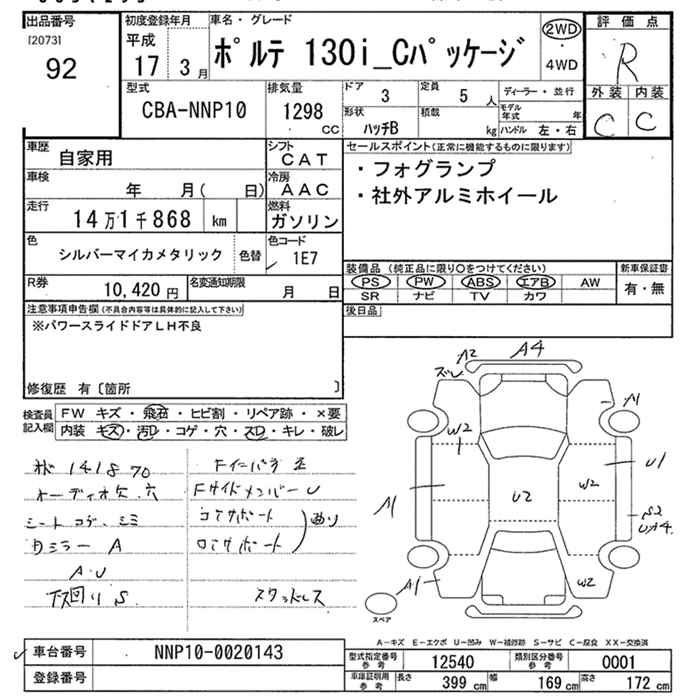 出品番号
[2073]
92
初度登録年月
平成
17 3月
車名・グレード
ポルテ 130i_Cパッケージ
2WD
・
4WD
評価点
R
外装 内装
C C
型式
CBA-NNP10
排気量
1298
cc
ドア
3
定員
5 人
ディーラー・並行
モデル
年式 年
形状
ハッチB
積載
kg
ハンドル 左・右
車歴
自家用
シフト
CAT
車検
年 月( 日)
冷房
AAC
走行
14万1千868 km
燃料
ガソリン
色
シルバーマイカメタリック
色替
色コード
1E7
R券
10,420 円
名変通知期限
月 日
セールスポイント(正常に機能するものに限ります)
・フォグランプ
・社外アルミホイール
装備品 (純正品に限り○をつけてください)
PS PW ABS エアB AW
SR ナビ TV カワ
新車保証書
有・無
後日品
注意事項申告欄(不具合内容等は具体的に記入して下さい)
※パワースライドドアLH不良
修復歴 有〔箇所 〕
検査員
記入欄
FW キズ・飛石・ヒビ割・リペア跡・×要
内装 キズ・汚D・コゲ・穴・スD・キレ・破レ
141870
オーディオ欠.穴
シートコゲ.シミ
Rミラー A
A.U
下回りS
Fインパネ歪
FサイドメンバーU
コアサポート
ロアサポート
曲り
スタッドレス
A2
A4
ズレ
A1
W2
U2
W2
U1
A1
S2
UA4
A1
W2
スペア
A-キズ E-エクボ U-凹み W-補修跡 S-サビ C-腐食 XX-交換済
車台番号 NNP10-0020143
登録番号
型式指定番号
参考
12540
類別区分番号
参考
0001
車庫証明用
参考
長さ 399 cm 幅 169 cm 高さ 172 cm